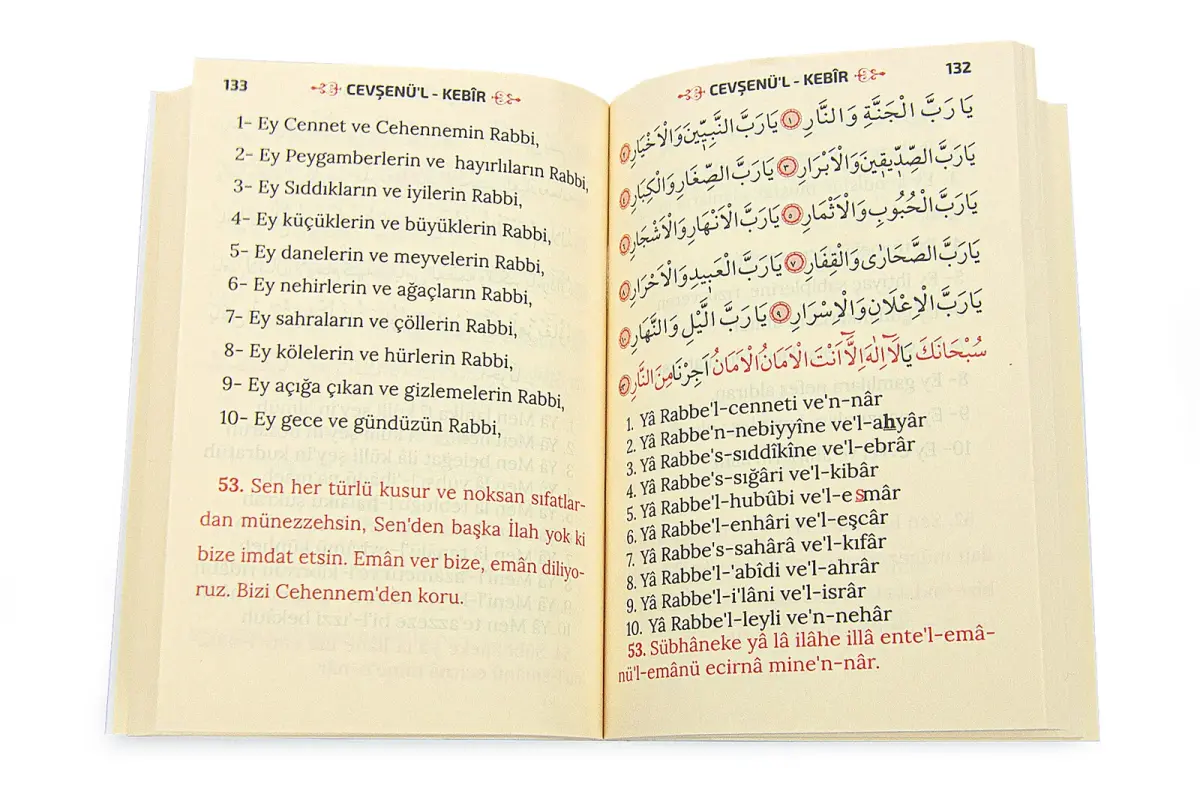 132
CEVŞENÜ'L - KEBÎR
يَا رَبَّ الْجَنَّةِ وَالنَّارِ ١ يَا رَبَّ النَّبِيّٖينَ وَالْاَخْيَارِ ٢
يَا رَبَّ الصِّدّٖيقٖينَ وَالْاَبْرَارِ ٣ يَا رَبَّ الصِّغَارِ وَالْكِبَارِ ٤
يَا رَبَّ الْحُبُوبِ وَالْاَثْمَارِ ٥ يَا رَبَّ الْاَنْهَارِ وَالْاَشْجَارِ ٦
يَا رَبَّ الصَّحَارٰى وَالْقِفَارِ ٧ يَا رَبَّ الْعَبٖيدِ وَالْاَحْرَارِ ٨
يَا رَبَّ الْاِعْلَانِ وَالْاِسْرَارِ ٩ يَا رَبَّ الَّيْلِ وَالنَّهَارِ ١٠
سُبْحَانَكَ يَا لَٓا اِلٰهَ اِلَّٓا اَنْتَ الْاَمَانُ الْاَمَانُ اَجِرْنَا مِنَ النَّارِ
1. Yâ Rabbe'l-cenneti ve'n-nâr
2. Yâ Rabbe'n-nebiyyîne ve'l-ahyâr
3. Yâ Rabbe's-sıddîkîne ve'l-ebrâr
4. Yâ Rabbe's-sığâri ve'l-kibâr
5. Yâ Rabbe'l-hubûbi ve'l-esmâr
6. Yâ Rabbe'l-enhâri ve'l-eşcâr
7. Yâ Rabbe's-sahârâ ve'l-kıfâr
8. Yâ Rabbe'l-'abîdi ve'l-ahrâr
9. Yâ Rabbe'l-i'lâni ve'l-isrâr
10. Yâ Rabbe'l-leyli ve'n-nehâr
53. Sübhâneke yâ lâ ilâhe illâ ente'l-emâ-
nü'l-emânü ecirnâ mine'n-nâr.
133
CEVŞENÜ'L - KEBÎR
1- Ey Cennet ve Cehennemin Rabbi,
2- Ey Peygamberlerin ve hayırlıların Rabbi,
3- Ey Sıddıkların ve iyilerin Rabbi,
4- Ey küçüklerin ve büyüklerin Rabbi,
5- Ey danelerin ve meyvelerin Rabbi,
6- Ey nehirlerin ve ağaçların Rabbi,
7- Ey sahraların ve çöllerin Rabbi,
8- Ey kölelerin ve hürlerin Rabbi,
9- Ey açığa çıkan ve gizlemelerin Rabbi,
10- Ey gece ve gündüzün Rabbi,
53. Sen her türlü kusur ve noksan sıfatlar-
dan münezzehsin, Sen'den başka İlah yok ki
bize imdat etsin. Emân ver bize, emân diliyo-
ruz. Bizi Cehennem'den koru.